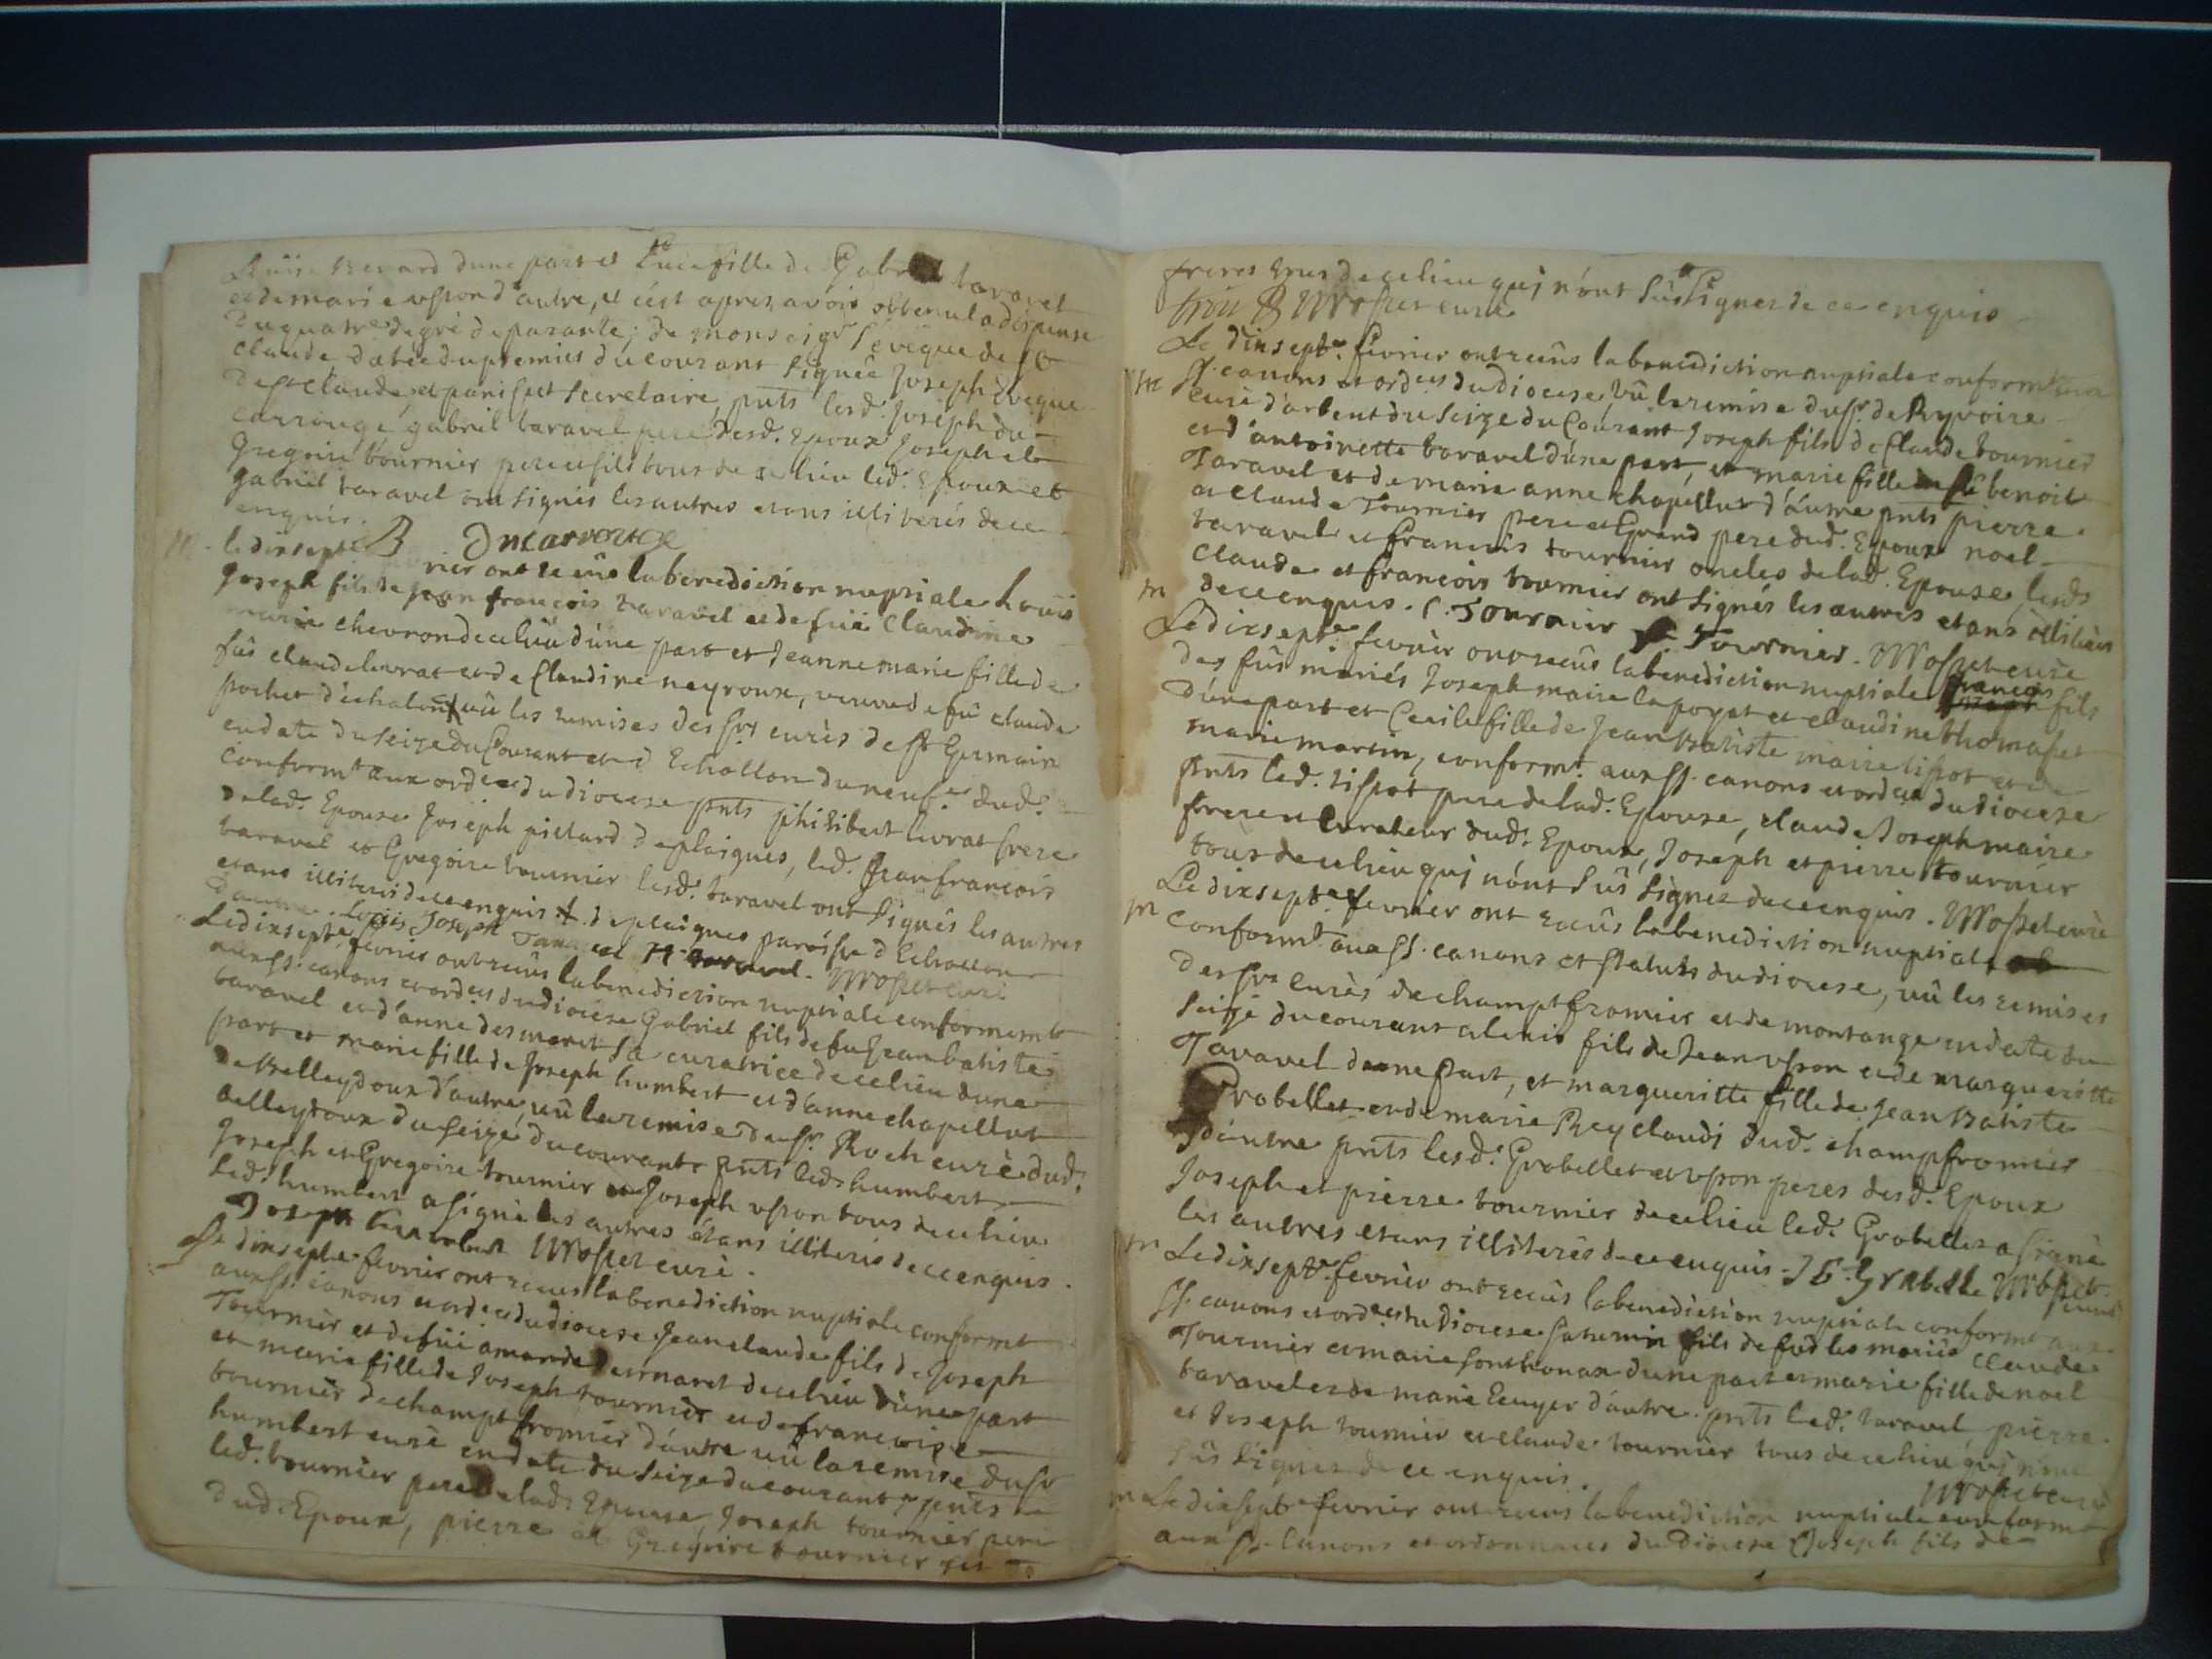 Louïse Berard dune part et Luce fille de Gabriel taravel
et de marie vsson d'autre, et c'est apres avoir obtenu la dispense
du quatre. degré de parante; de monseigr l'évêque de st
claude datée du premier du courant signée Joseph Eveque
de st claude et panisset secretaire, pnts lesd. Joseph du
carrouge gabriel taravel pere desd. Epoux Joseph et
Gregoire tournier pere et fils tous de ce lieu led. Epoux et
gabriel taravel ont signés les autres etans illiterés de ce
enquis. Ducarrouge
m. le dixsepte. vrier ont recûs la benediction nuptiale Louïs
Joseph fils de jean françois taravel et de fuë Claudine
marie chevron de ce lieu d'une part et Jeanne marie fille de
fûs claude livrat et de Claudine neyroux, veuve de fû claude
pochet d'echalon vû les remises des srs curès de st Germain
en date du seize du Courant et d Echallon du neufe. dud.
conformt aux ordces du diocese pnts philibert livrat frere
de lad. Epouse Joseph pillard de plaignes, led. Jean françois
taravel et Gregoire tournier lesd. taravel ont signés les autres
etans illiterés de ce enquis. de plaignes paroisse d Echallon
d'autre. Louis Joseph Taravel taravel. Mosset curè
Le dixsepte. fevrier ont recûs la benediction nuptiale conformemt
aux ss. canons et ordces du diocese Gabriel fils de fu Jean batiste
taravel et d'anne desmaret sa curatrice de ce lieu dune
part et marie fille de Joseph humbert et d'anne chapellut
de Belleydoux d'autre, vû la remise du sr. Roch curè dud.
belleydoux du seize du courant pnts led. humbert
Joseph et Gregoire tournier Joseph vsson tous de ce lieu
led. humbert a signè les autres étans illiterés de ce enquis.
Joseph humbert Mosset curè.
Le dixsepte. fevrier ont recûs la benediction nuptiale conformt
aux ss. canons et ordces du diocese Jean claude fils de Joseph
Tournier et de fuë amande desmaret de ce lieu d'une part
et marie fille de Joseph tournier et de françoise
tournier de champtfromier d'autre vû la remise du sr
humbert curè en date du seize du courant pnts
led. tournier pere de lad. Epouse, Joseph tournier pere
dud. Epoux, pierre et Gregoire tournier ses
freres tous de ce lieu qui n'ont sûs signer de ce enquis
Mosset curè
Le dixsepte. fevrier ont recûs la benediction nuptiale conformt aux
m ss. canons et ordces du diocese vû la remise du sr. de Ryvoire
curè d'arbent du seize du Courant Joseph fils de Claude tournier
et d'antoinette taravel d'une part, et marie fille de fû benoit
Taravel et de marie anne chapellut d'autre pnts pierre
et claude Tournier pere et Grand pere dud. Epoux noel
taravel et francois tournier oncles de lad. Epouse, lesds
claude et francois tournier ont signés les autres etans illiterés
de ce enquis. C. Tournier f. Tournier. Mosset curè
m Le dixsepte. fevrier ont recûs la benediction nuptiale françois fils
des fûs mariés Joseph maire lapoyat et claudine thomasset
d'une part et Cecile fille de Jean Batiste maire tissot et de
marie martin, conformt. aux ss. canons et ordces du diocese
pnts led. tissot pere de lad. Epouse, claude Joseph maire
frere et curateur dud. Epoux, Joseph et pierre tournier
tous de ce lieu qui n'ont sûs signer de ce enquis. Mosset curè
m Le dixsepte. fevrier ont recûs la benediction nuptiale
conformt. aux ss. canons et statuts du diocese, vû les remises
des srs curès de champtfromier et de montange en date du
seize du courant alexis fils de Jean vsson et de margueritte
Taravel d'une part, et margueritte fille de Jean Batiste
Grobellet et de marie Rey claudi dud. champfromier
d'autre pnts lesd. Grobellet et vsson peres desd. Epoux
Joseph et pierre tournier de ce lieu led. Grobellet a signè
les autres etans illiterés de ce enquis. J B Grabelle Mosset curè
m Le dixsepte. fevrier ont recûs la benediction nuptiale conformt aux
ss. canons et ordces du diocese saturnin fils de fûs les mariés claude
Tournier et marie sonthonax d'une part et marie fille de noel
taravel et de marie Lenger d'autre. pnts led. taravel pierre
et Joseph tournier et claude tournier tous de ce lieu qui n'ont
sûs signer de ce enquis. Mosset curè
m Le dixsepte fevrier ont recûs la benediction nuptiale conformt
aux ss. Canons et ordonnances du Diocese Joseph fils de